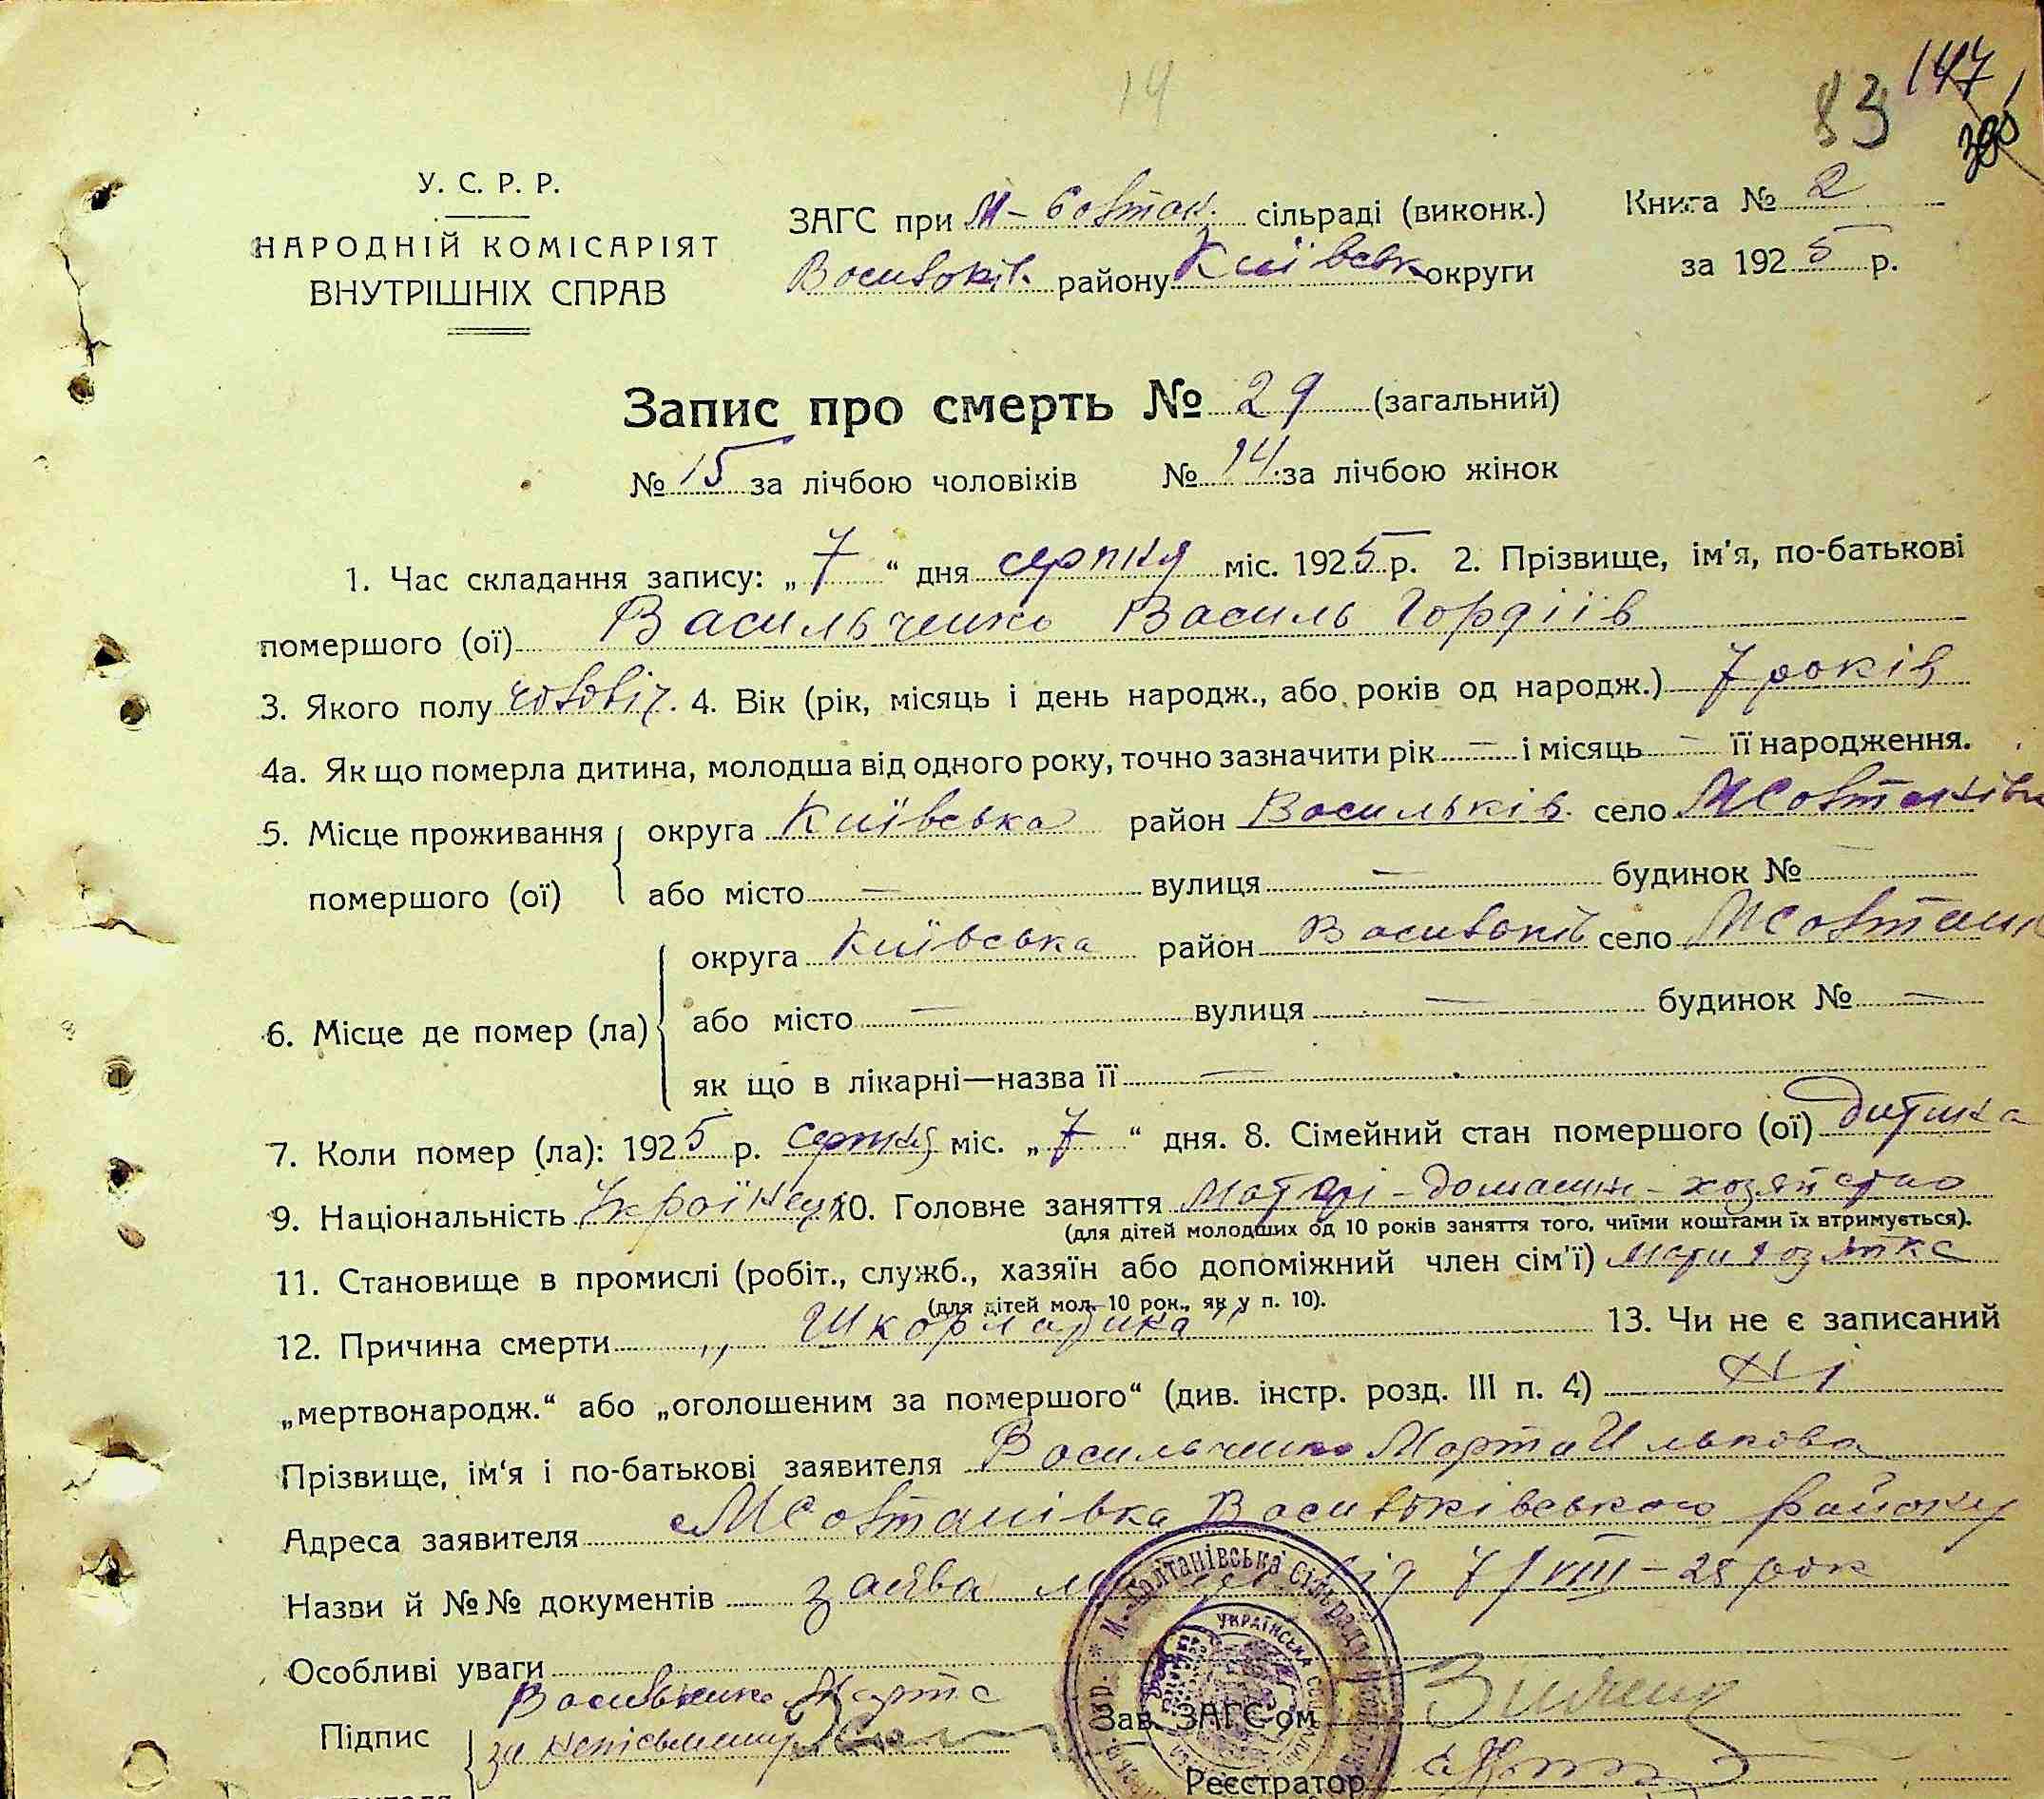 14
83 147
У. С. Р. Р.
НАРОДНІЙ КОМІСАРІЯТ
ВНУТРІШНІХ СПРАВ
ЗАГС при М-Солтан. сільраді (виконк.)
Васильків. району Київськ округи
Книга № 2
за 1925 р.
Запис про смерть № 29 (загальний)
№ 15 за лічбою чоловіків № 14 за лічбою жінок
1. Час складання запису: „7“ дня серпня міс. 1925 р. 2. Прізвище, ім'я, по-батькові
помершого (ої) Васильченко Василь Гордіїв
3. Якого полу чоловіч. 4. Вік (рік, місяць і день народж., або років од народж.) 7 років
4а. Як що померла дитина, молодша від одного року, точно зазначити рік — і місяць — її народження.
5. Місце проживання округа Київська район Васильків. село МСолтанівк
помершого (ої) або місто — вулиця — будинок № —
округа Київська район Васильків село МСолтан
6. Місце де помер (ла) або місто — вулиця — будинок № —
як що в лікарні—назва її —
7. Коли помер (ла): 1925 р. серпня міс. „7“ дня. 8. Сімейний стан помершого (ої) дитина
9. Національність Українець 10. Головне заняття Матері - домашн - хозяйство
(для дітей молодших од 10 років заняття того, чиїми коштами їх втримується).
11. Становище в промислі (робіт., служб., хазяїн або допоміжний член сім'ї) мати хозяйка
(для дітей мол. 10 рок., як у п. 10).
12. Причина смерти „Шкорлатина“ 13. Чи не є записаний
„мертвонародж.“ або „оголошеним за помершого“ (див. інстр. розд. III п. 4) Ні
Прізвище, ім'я і по-батькові заявителя Васильченко Марта Илькова
Адреса заявителя МСолтанівка Васильківського району
Назви й №№ документів заява від 7/VIII - 25 рок
М.-Солтанівська Сільрада
УКРАЇНСЬКА
Особливі уваги
Підпис Васильченко Марта
за неписьменну
Зав. ЗАГС-ом
Реєстратор